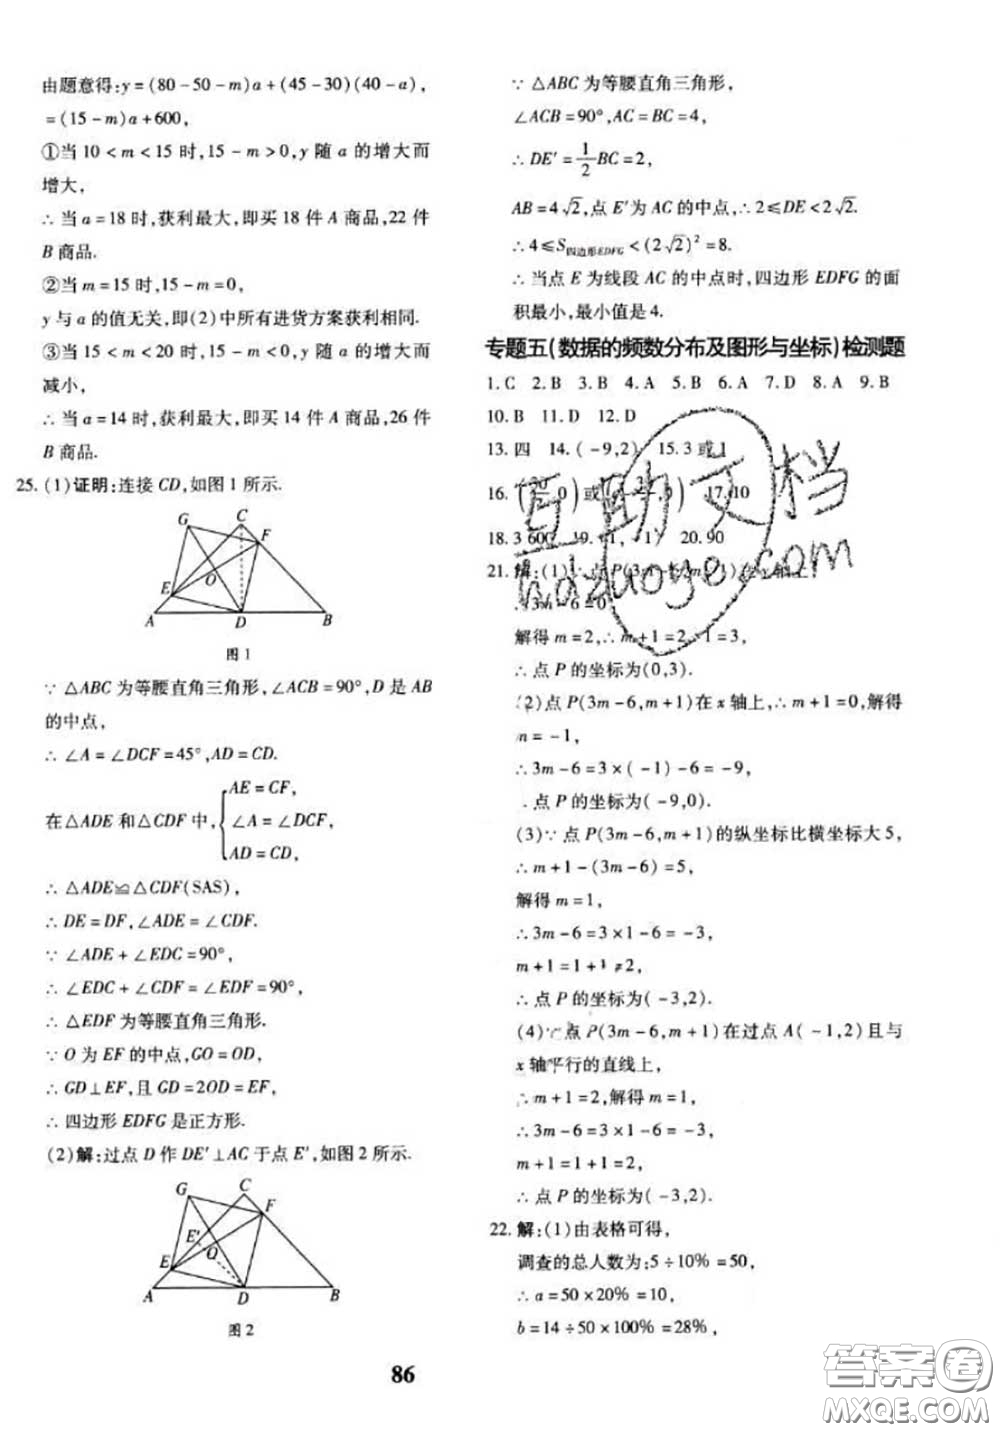 由题意得:y=(80-50-m)a+(45-30)(40-a),
=(15-m)a+600,
①当10<m<15时,15-m>0,y随a的增大而
增大,
∴当a=18时,获利最大,即买18件A商品,22件
B商品.
②当m=15时,15-m=0,
y与a的值无关,即(2)中所有进货方案获利相同.
③当15<m<20时,15-m<0,y随a的增大而
减小,
∴当a=14时,获利最大,即买14件A商品,26件
B商品.
25.(1)证明:连接CD,如图1所示.
G C F E O A D B
图1
∵△ABC为等腰直角三角形,∠ACB=90°,D是AB
的中点,
∴∠A=∠DCF=45°,AD=CD.
AE=CF,
在△ADE和△CDF中,{∠A=∠DCF,
AD=CD,
∴△ADE≌△CDF(SAS),
∴DE=DF,∠ADE=∠CDF.
∵∠ADE+∠EDC=90°,
∴∠EDC+∠CDF=∠EDF=90°,
∴△EDF为等腰直角三角形.
∵O为EF的中点,GO=OD,
∴GD⊥EF,且GD=2OD=EF,
∴四边形EDFG是正方形.
(2)解:过点D作DE′⊥AC于点E′,如图2所示.
G C F E′ O E A D B
图2
∵△ABC为等腰直角三角形,
∠ACB=90°,AC=BC=4,
∴DE′=1/2BC=2,
AB=4√2,点E′为AC的中点,∴2≤DE<2√2.
∴4≤S四边形EDFG<(2√2)²=8.
∴当点E为线段AC的中点时,四边形EDFG的面
积最小,最小值是4.
专题五(数据的频数分布及图形与坐标)检测题
1.C 2.B 3.B 4.A 5.B 6.A 7.D 8.A 9.B
10.B 11.D 12.D
13.四 14.(-9,2) 15.3或1
16. 或 17.10
18.3 600 19. 20.90
21.解:(1)∵点P(3m-6,m+1)在y轴上,
∴3m-6=0,
解得m=2,∴m+1=2+1=3,
∴点P的坐标为(0,3).
(2)点P(3m-6,m+1)在x轴上,∴m+1=0,解得
m=-1,
∴3m-6=3×(-1)-6=-9,
点P的坐标为(-9,0).
(3)∵点P(3m-6,m+1)的纵坐标比横坐标大5,
∴m+1-(3m-6)=5,
解得m=1,
∴3m-6=3×1-6=-3,
m+1=1+1=2,
∴点P的坐标为(-3,2).
(4)∵点P(3m-6,m+1)在过点A(-1,2)且与
x轴平行的直线上,
∴m+1=2,解得m=1,
∴3m-6=3×1-6=-3,
m+1=1+1=2,
∴点P的坐标为(-3,2).
22.解:(1)由表格可得,
调查的总人数为:5÷10%=50,
∴a=50×20%=10,
b=14÷50×100%=28%,
86
互助文档
hazuoye.com
答案圈
MXQE.COM